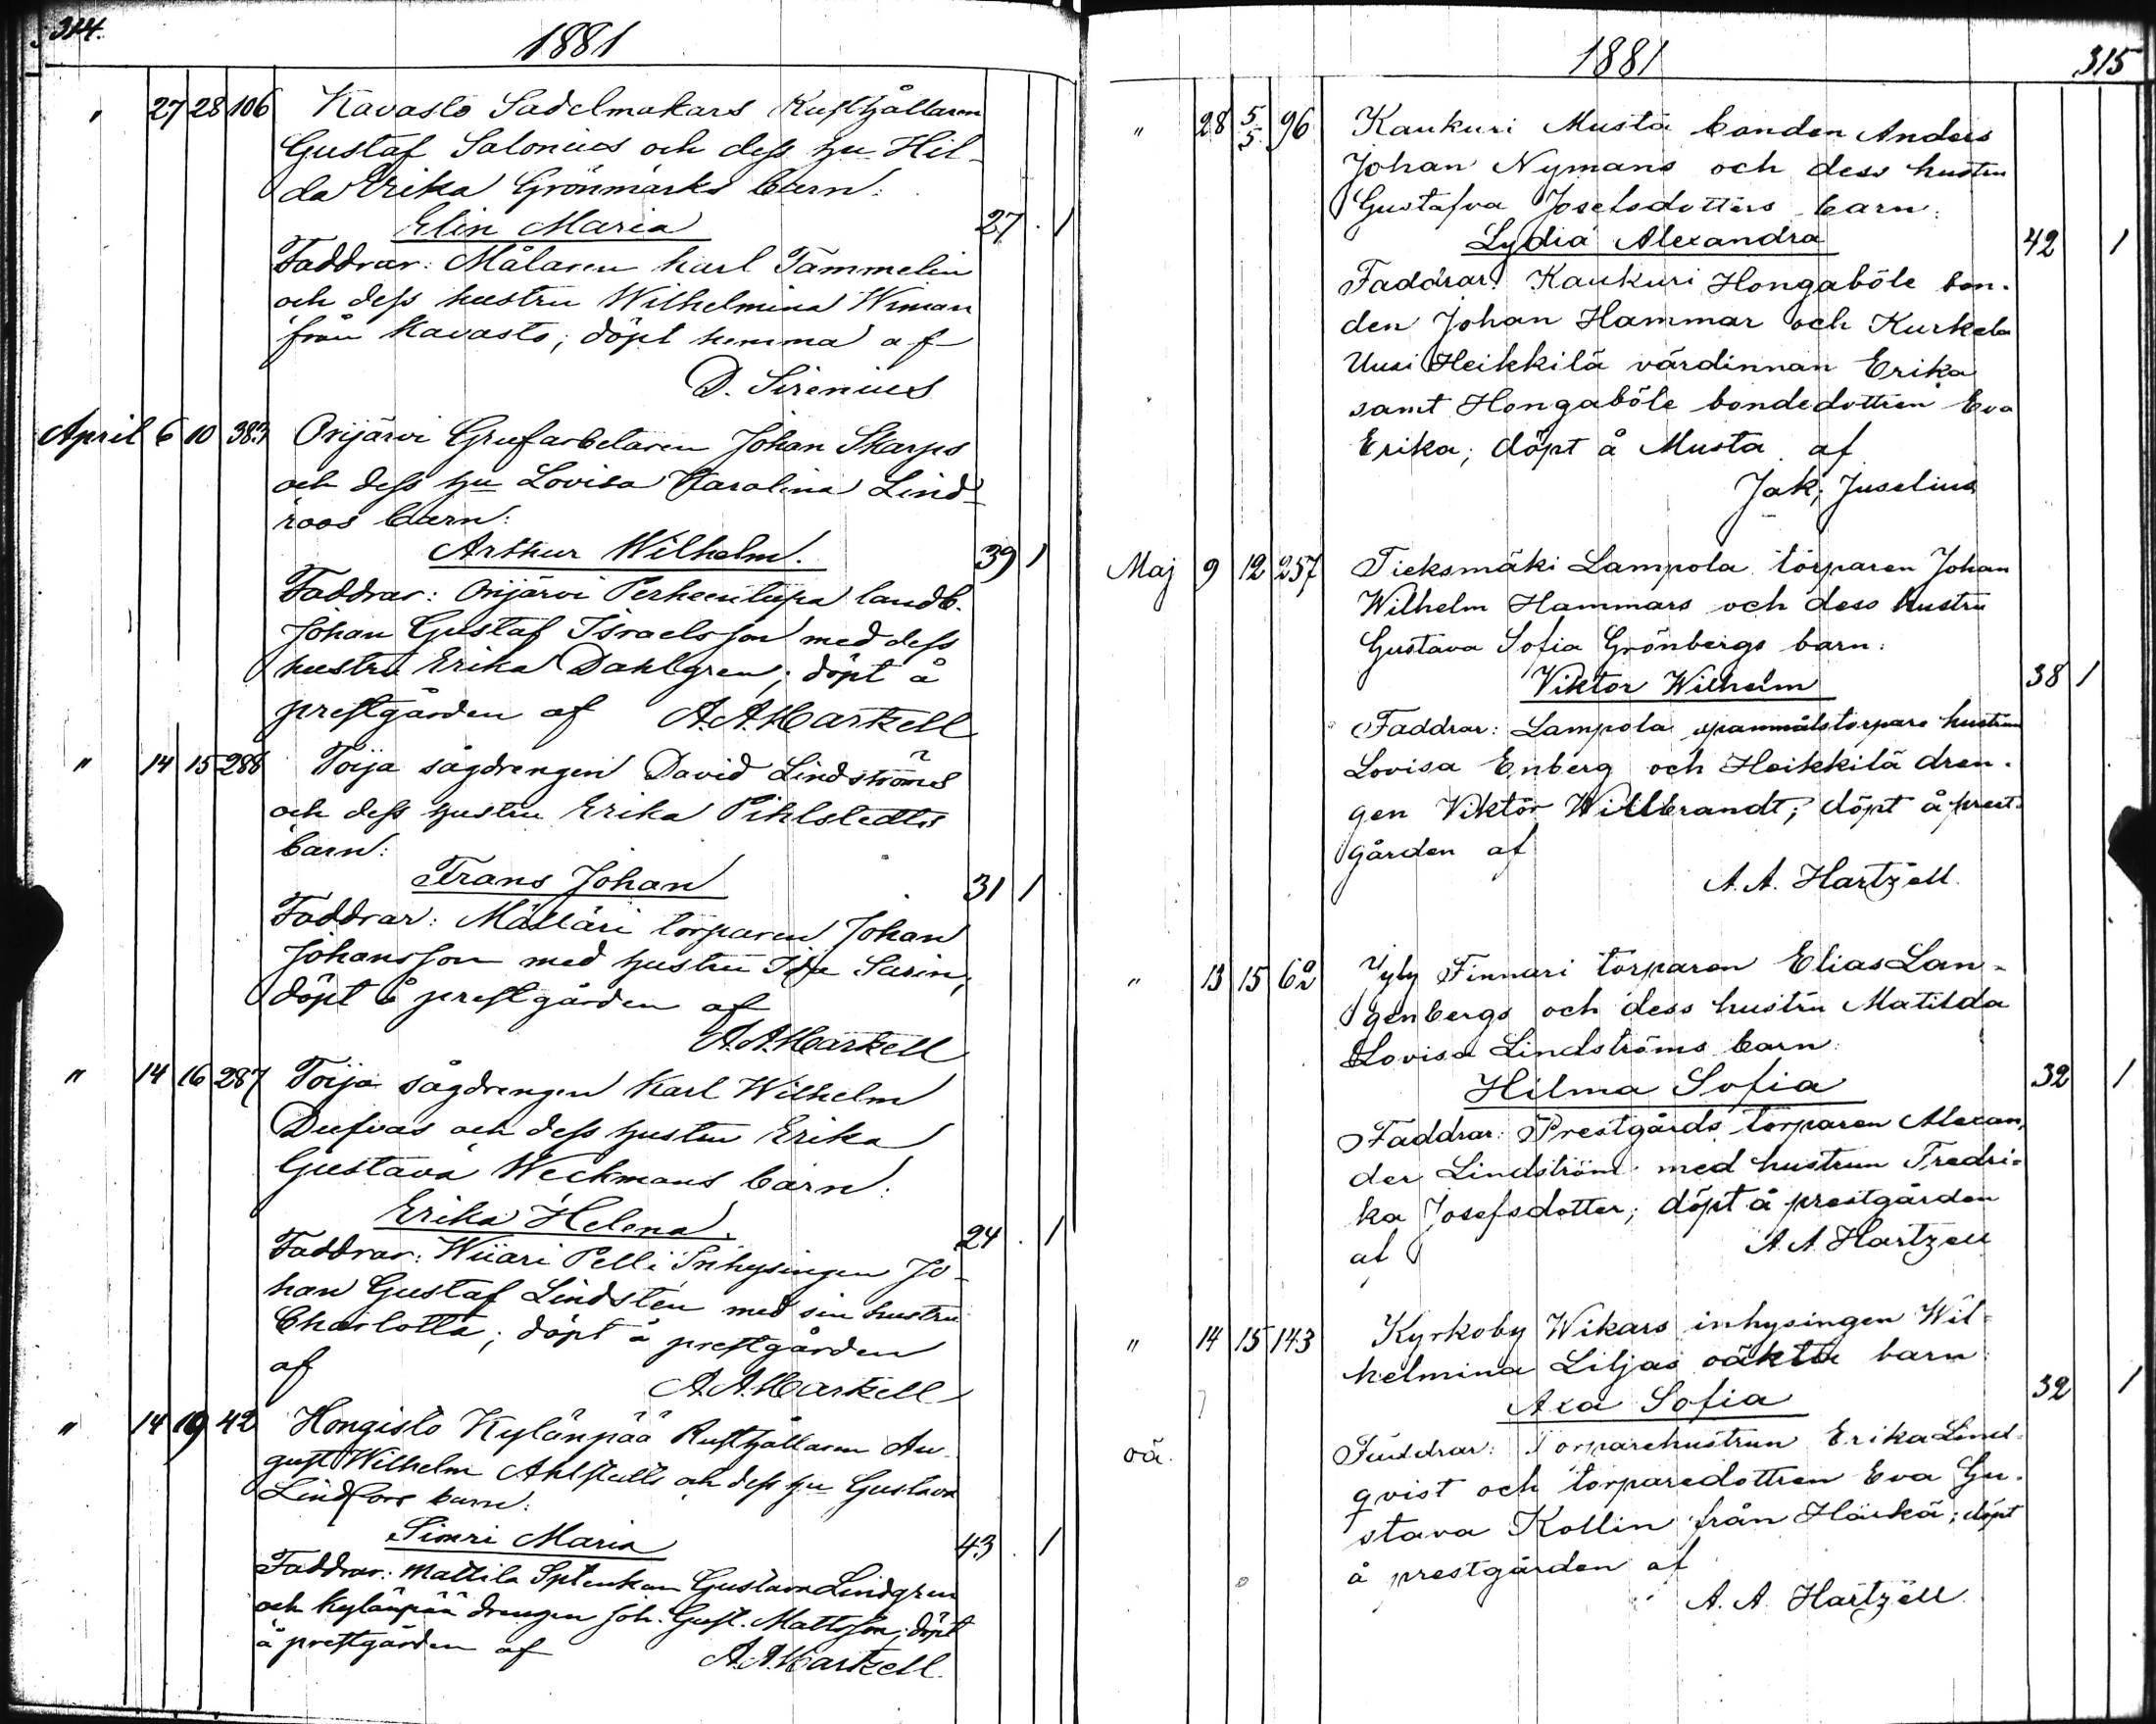 314.
1881
" 27 28 106 Kavasto Sadelmakars Rusthållaren
Gustaf Salonius och dess hu Hil-
da Erika Grönmarks barn:
Elin Maria 27 . 1
Faddrar: Målaren Karl Tammelin
och dess hustru Wilhelmina Wiman
från Kavasto; döpt hemma af
D. Sirenius
April 6 10 383 Orijärvi Grufarbetaren Johan Skarps
och dess hu Lovisa Karolina Lind-
roos barn:
Arthur Wilhelm. 39 1
Faddrar: Orijärvi landb.
Johan Gustaf Israelsson med dess
hustru Erika Dahlgren; döpt å
prestgården af A. A. Hartzell
" 14 15 288 Toija sågdrengen David Lindströms
och dess hustru Erika Pihlstedts
barn:
Frans Johan 31 1
Faddrar: Mälläri torparen Johan
Johansson med hustru Ida Sarin;
döpt å prestgården af
A. A. Hartzell
" 14 16 287 Toija sågdrengen Karl Wilhelm
Dufvas och dess hustru Erika
Gustava Weckmans barn:
Erika Helena. 24 . 1
Faddrar: Wiiari Pelli Inhysingen Jo-
han Gustaf Lindstén med sin hustru
Charlotta; döpt å prestgården
af
A. A. Hartzell
" 14 19 42 Hongisto Kylänpää Rusthållaren Au-
gust Wilhelm och dess hu Gustava
Lindfors barn:
Simri Maria 43 . 1
Faddrar: Mattila Gustava Lindgren
och Kylänpää drengen Joh. Gust. Mattsson; döpt
å prestgården af A. A. Hartzell.
1881
315
" 28 5/5 96 Kaukuri Musta bonden Anders
Johan Nymans och dess hustru
Gustafva Josefsdotters barn:
Lydia Alexandra 42 1
Faddrar: Kaukuri Hongaböle bon-
den Johan Hammar och Kurkela
Uusi Heikkilä värdinnan Erika
samt Hongaböle bondedottren Eva
Erika; döpt å Musta af
Jak; Juselius
Maj 9 12 257 Tieksmäki Lampola torparen Johan
Wilhelm Hammars och dess hustru
Gustava Sofia Grönbergs barn:
Viktor Wilhelm 38 1
Faddrar: Lampola spannmålstorpare hustrun
Lovisa Enberg och Heikkilä dren-
gen Viktor Willbrandt; döpt å prest-
gården af
A. A. Hartzell.
" 13 15 62 Jyly Finnari torparen Elias Lan-
genbergs och dess hustru Matilda
Lovisa Lindströms barn:
Hilma Sofia 32 1
Faddrar: Prestgårds torparen Alexan-
der Lindström med hustrun Fredri-
ka Josefsdotter; döpt å prestgården
af A. A. Hartzell
" 14 15 143 Kyrkoby Wikars inhysingen Wil-
helmina Liljas oäkta barn:
Axa Sofia 32 1
oä. Faddrar: Torparehustrun Erika Lind-
qvist och torparedottren Eva Gu-
stava Kollin från Härkä; döpt
å prestgården af
A. A. Hartzell